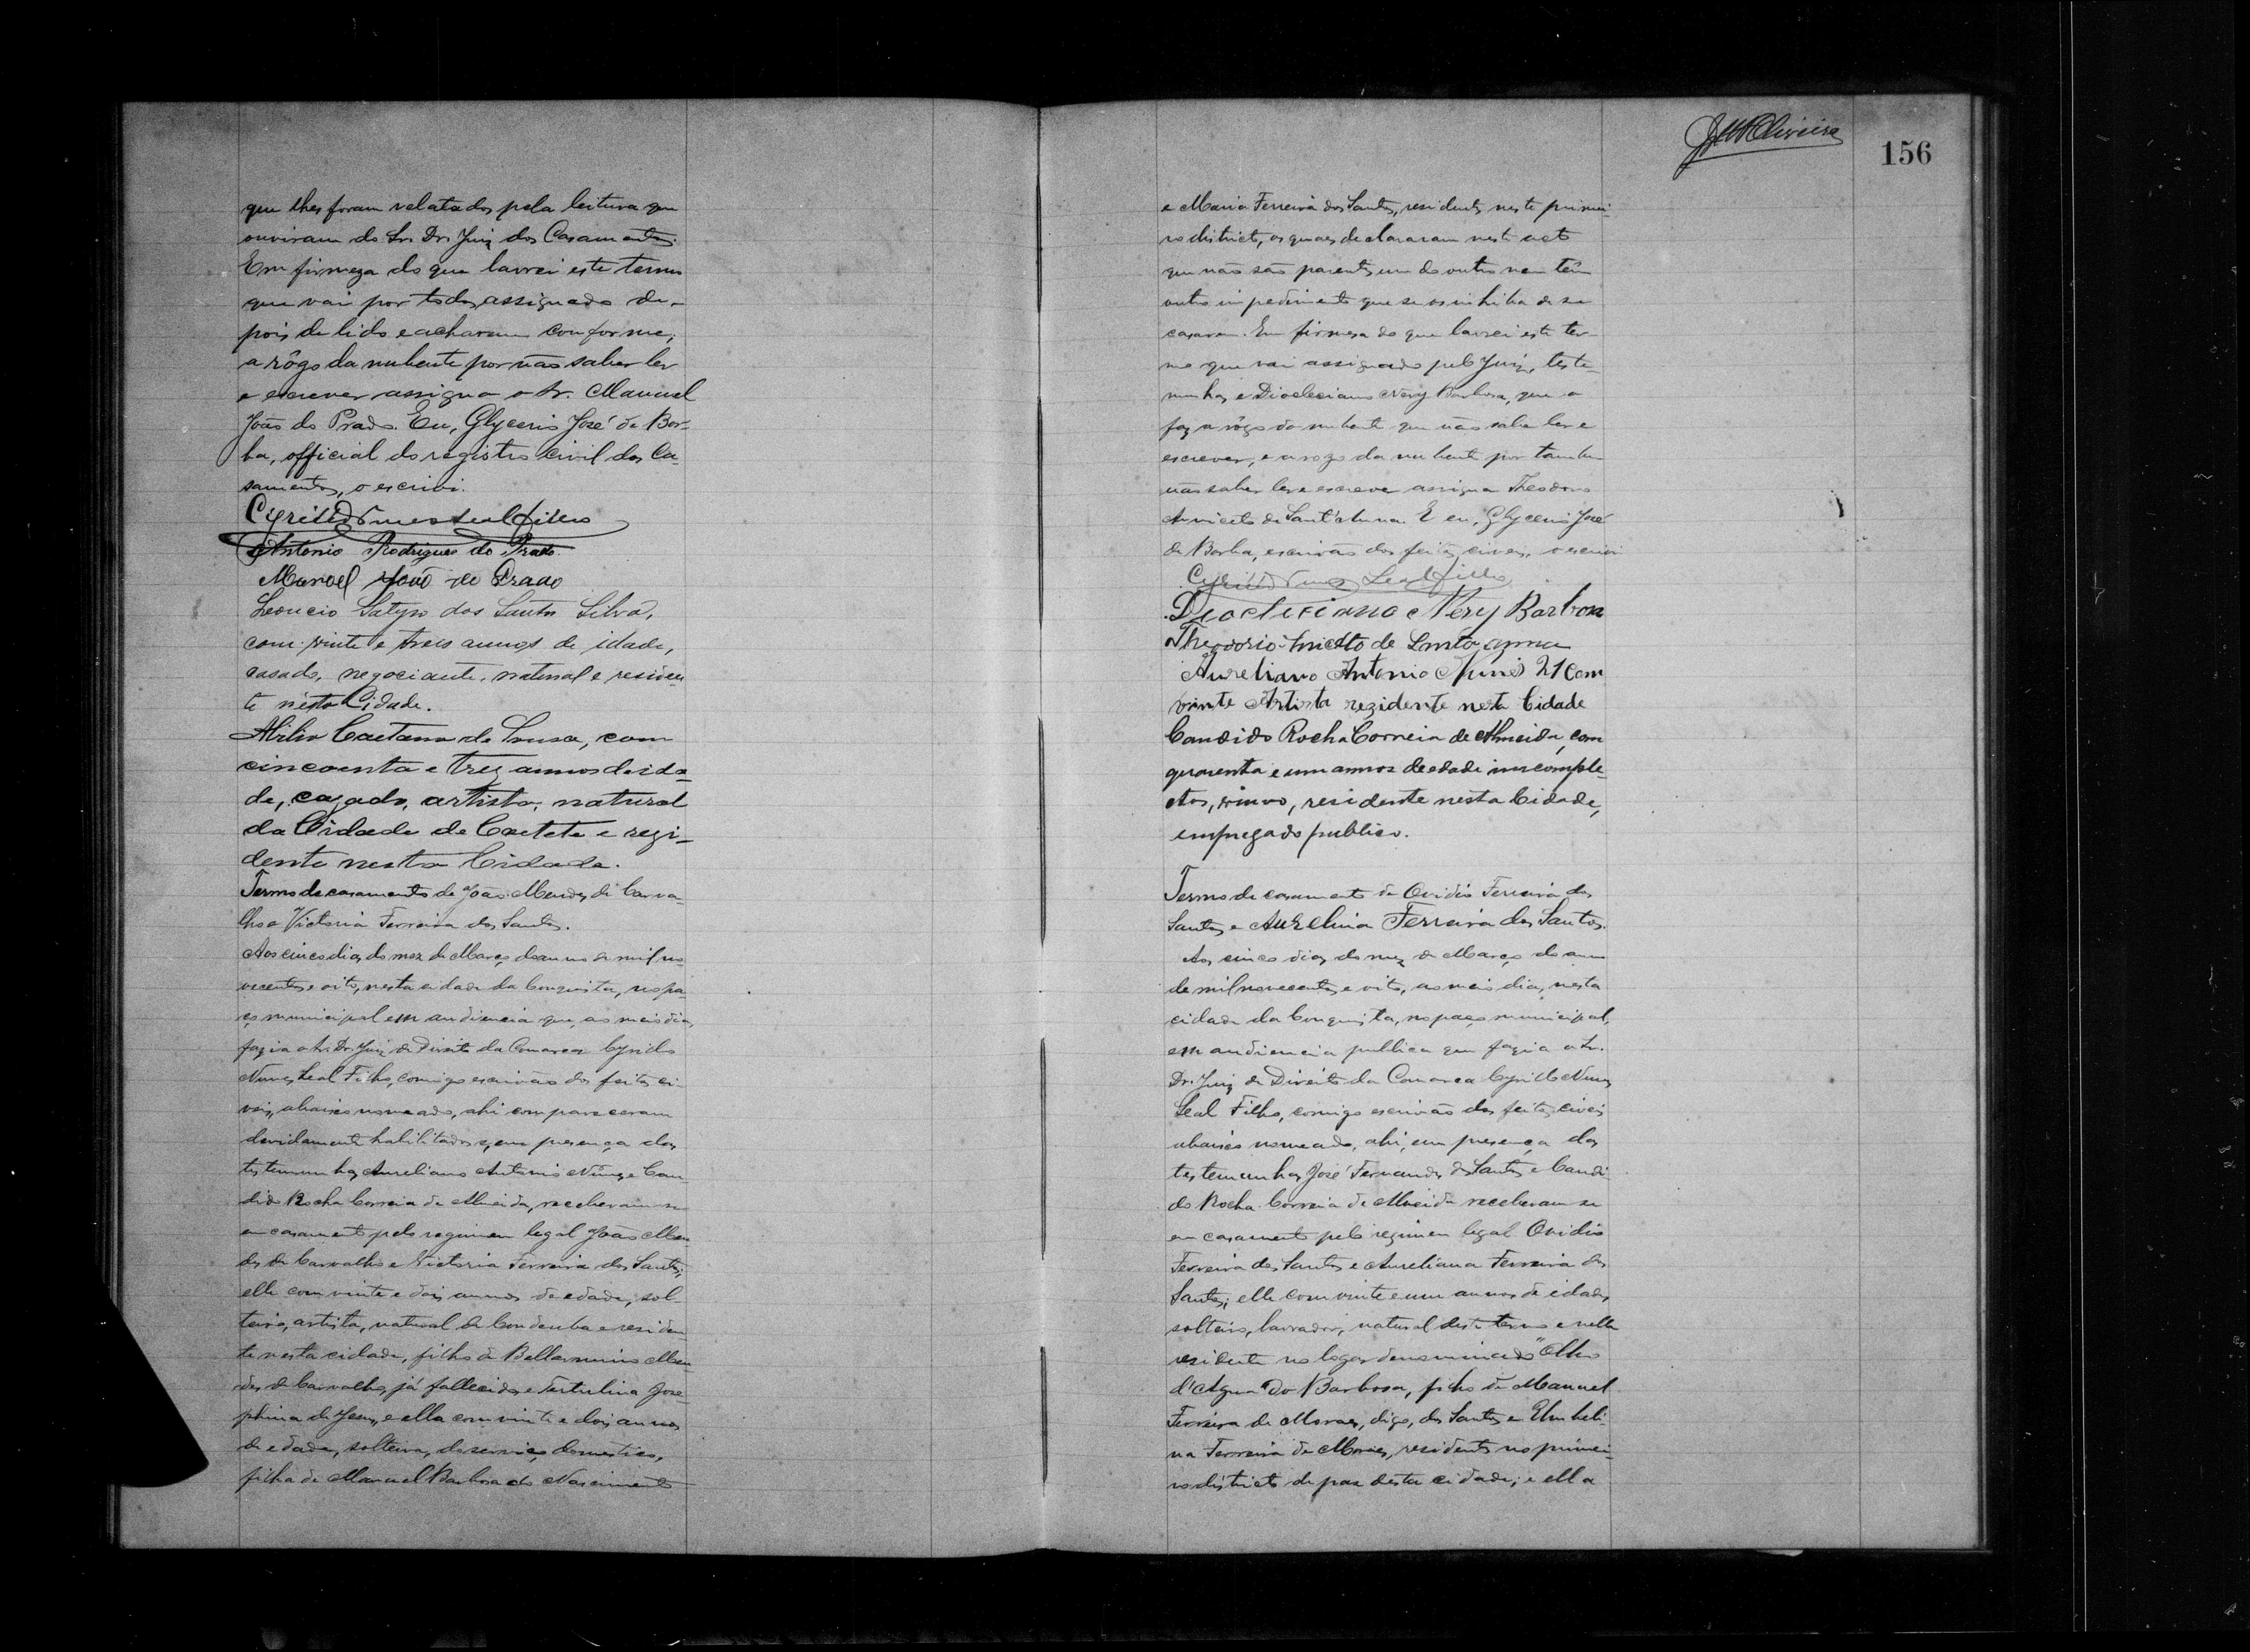 que lhes foram relatados pela leitura que
ouviram do Snr. Dr. Juiz dos Casamentos.
Em firmeza do que lavrei este termo
que vai por todos assignado de-
pois de lido e acharem conforme;
a rôgo da nubente por não saber ler
e escrever assigna o Sr. Manuel
João do Prado. Eu, Glycerio José de Bor-
ba, official do registro civil dos Ca-
samentos, o escrivi.
Cyrillo Nunes Leal Filho
Antonio Rodrigues do Prado
Manoel João do Prado
Leoncio Satyro dos Santos Silva,
com vinte e treis annos de idade,
casado, negociante, natural e residen
te nésta Cidade.
Abilio Caetano de Sousa, com
cincoenta e trez annos de ida-
de, cazado, artista, natural
da Cidade de Caetete e rezi-
dente nesta Cidade.
Termo de casamento de João Mendes de Carva-
lho e Victoria Ferreira dos Santos.
Aos cinco dias do mez de Março do anno de mil no-
vecentos e oito, nesta cidade da Conquista, no pa-
ço municipal em audiencia que, ao meio dia,
fazia o Sr. Dr. Juiz de Direito da Comarca Cyrillo
Nunes Leal Filho, comigo escrivão dos feitos ci-
veis, abaixo nomeado, ahi compareceram
devidamente habilitados e, em presença das
testemunhas Aureliano Antonio Nunes e Can-
dido Rocha Correia de Almeida, receberam-se
em casamento pelo regimen legal João Men
des de Carvalho e Victoria Ferreira dos Santos;
elle com vinte e dois annos de edade, sol-
teiro, artista, natural de Condeuba e residen-
te nesta cidade, filho de Bellarmino Men
des de Carvalho, já fallecido, e Tertulina Jose-
phina de Jesus, e ella com vinte e dois annos
de edade, solteira, do serviço domestico,
filha de Manuel Barbosa do Nascimento
156
e Maria Ferreira dos Santos, residentes neste primei
ro districto, os quaes declararam neste acto
que não são parentes um do outro nem têm
outro impedimento que se os inhiba de se
casarem. Em firmesa do que lavrei este ter-
mo que vai assignado pelo Juiz, teste-
munhas e Diocleciano Nery Barbosa, que o
faz a rôgo do nubente que não sabe ler e
escrever, e a rogo da nubente por tambem
não saber ler e escrever assigna Theodoro
Aniceto de Sant'Anna. E eu, Glycerio José
de Borba, escrivão dos feitos civeis, o escrivi
Cyrillo Nunes Leal Filho
Diocleciano Nery Barbosa
Theodorio Aniceto de Santa anna
Aureliano Antonio Nunes 21 Com
vinte Artista rezidente nesta Cidade
Candido Rocha Correia de Almeida, com
quarenta e um annos de edade imcomple-
ctos, viuvo, residente nesta Cidade,
empregado publico.
Termo de casamento de Ovidio Ferreira dos
Santos e Aurelina Ferreira dos Santos.
Aos cinco dias do mez de Março do anno
de mil novecentos e oito, ao meio dia, nesta
cidade da Conquista, no paço municipal,
em audiencia publica que fazia o Sr.
Dr. Juiz de Direito da Comarca Cyrillo Nunes
Leal Filho, comigo escrivão dos feitos civeis
abaixo nomeado, ahi, em presença das
testemunhas José Fernandes dos Santos e Candi-
do Rocha Correia de Almeida receberam-se
em casamento pelo regimen legal Ovidio
Ferreira dos Santos e Aureliana Ferreira dos
Santos; elle com vinte e um annos de idade,
solteiro, lavrador, natural deste termo e nelle
residente no logar denominado "Olho
d'Agua" do Barbosa, filho de Manuel
Ferreira de Moraes, digo, dos Santos e Umbeli-
na Ferreira de Moraes, residentes no primei-
ro districto de paz desta cidade; e ella